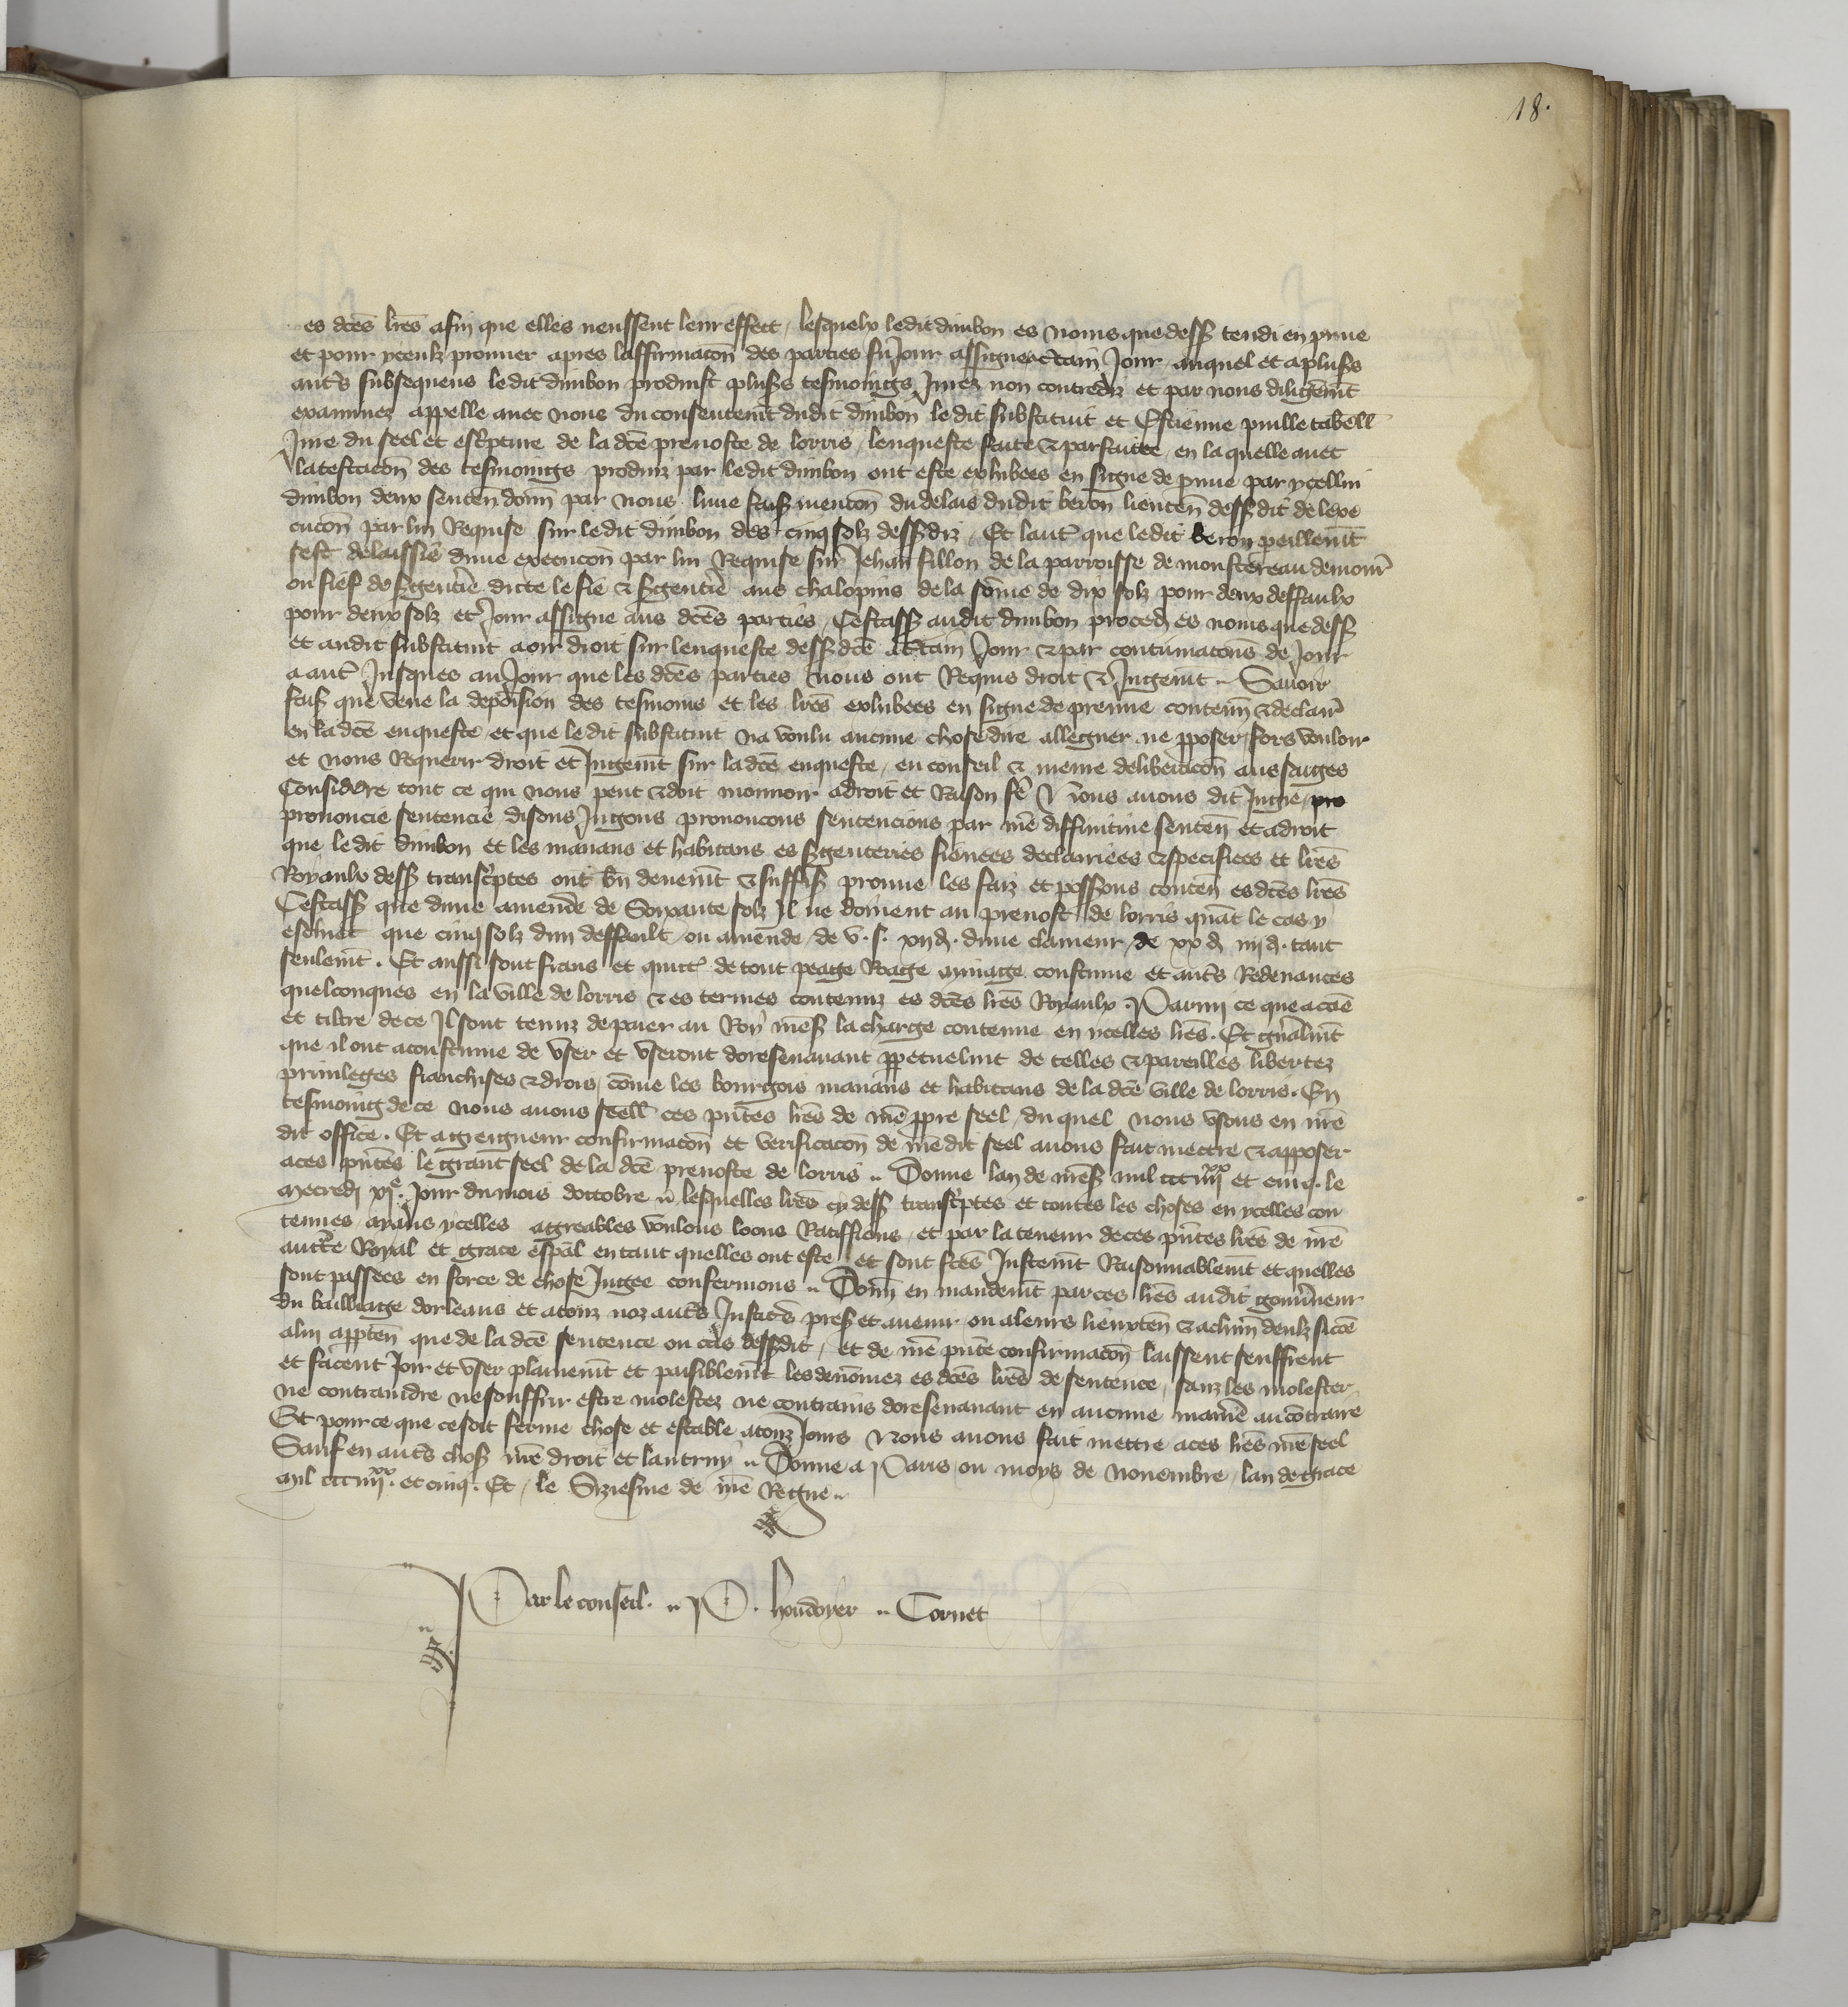 18.
es dces lres afin que elles neussent leur effect / lesquelx ledit dimbon es noms que dess tendi en preuve
et pour yceulx prouver apres laffirmacon des parties fu Jour assigne a certain Jour / auquel et a pluss
autres subsequens ledit dimbon produist pluss tesmoings Jurez non contrediz et par nous diligemt
examinez appelle avec nous du consentemt dudit dimbon ledit substitut et Estienne tabell
Jure du seel et escripture de la dce prevoste de lorris / lenqueste faite et parfaitte / en la quelle avec
latestacon des tesmoings produiz par ledit dimbon ont este exhibees en signe de preuve par ycellui
dimbon deux senten donn par nous lune fais mencon du delais dudit beron lieuten dessdit de lexe
cucon par lui Requise sur ledit dimbon des cinq solz dessdiz / Et lautre que ledit beron peillemt
sest delaissie dune execucon par lui Requise sur Jehan fillon de la parroisse de monstereau demour
ou fief de sgentie dicte le fie et sgentie aus chalopins de la some de dix solz pour deux deffaulx
pour deux solz et Jour assigne aus dces parties / Cestass audit dimbon proced es noms que dess
et audit substitut a oir droit sur lenqueste dess dce a certain Jour et par continuacons de Jour
a autre Jusques au Jour que les dces parties nous ont Requis droit et Jugemt .. Savoir
fais que veue la deposision des tesmoins et les lres exhibees en signe de preuve contenu et declair
en la dce enqueste et que ledit substitut na voulu aucune chose dire alleguer ne pposer / fors vouloir
et nous Requerir droit et Jugemt sur la dce enqueste / eu conseil et meure deliberacon aus saiges
Considere tout ce qui nous peut et doit mouvoir a droit et Raison fe Nous avons dit Jugie / pro
prononcie sentencie disons Jugons prononcons sentencions par nre diffinitive senten et a droit
que ledit dimbon et les manans et habitans es sgenteries fievees declairiees et specifiees et lres
Royaulx dess transcriptes ont bn deuemt et suffis prouve les faiz et possons conten es dces lres
Cestass que dune amende de Soixante solz Il ne doivent au prevost de lorris quant le cas y
eschiet que cinq solz dun deffault / ou amende / de v. s. xij d. dune clameur / de xx d iiij d. tant
seulemt . Et aussi sont frans et quict de tout peage Roage coustume et autres Redevances
quelconques en la ville de lorris et es termes contenuz es dces lres Royaulx . Parmi ce que a cause
et tiltre de ce Il sont tenuz de paier au Roy nres la charge contenue en ycelles lres . Et gnalmt
que il ont acoustume de user et useront doresenavant ppetuelmt de telles et pareilles libertez
privileges franchises et drois / come les bourgois manans et habitans de la dce ville de lorris . En
tesmoing de ce nous avons seell ces pntes lres de nre ppre seel / du quel nous usons en nre
dit office . Et a greigneur confirmacon et verificacon de nre dit seel avons fait mectre et apposer
a ces pntes le grant seel de la dce prevoste de lorris .. Donne lan de nres mil ccc iiijxx et cinq . le
mecredi xje. Jour du mois doctobre .. lesquelles lres cy dess transcriptes et toutes les choses en ycelles con
tenues ayans ycelles agreables voulons loons Ratiffions / et par la teneur de ces pntes lres de nre
aucte Royal et grace espal en tant quelles ont este et sont fces Justemt Raisonnablemt et quelles
sont passees en force de chose Jugee confermons .. Donn en mandemt par ces lres audit gouvneur
du bailliage dorleans et a touz noz autres Justic pres et avenir ou a leurs lieuxten et a chun deulx sicoe
a lui apptien que de la dce sentence ou cas dessdit / et de nre pnte confirmacon laissent seuffrent
et facent Joir et user plainemt et paisiblemt les denomez es dces lres de sentence / sanz les molester
ne contraindre ne souffrir estre molestez ne contrains doresenavant en aucune maniere au contraire
Et pour ce que ce soit ferme chose et estable a touz Jours Nous avons fait mettre a ces lres nre seel
Sauf en autres chos nre droit et lautruy .. Donne a Paris ou moys de novembre / lan de grace
mil ccc iiijxx. et cinq . Et / le Siziesme de nre Regne ..
Par le conseil . .. P . houdoyer .. Cornet